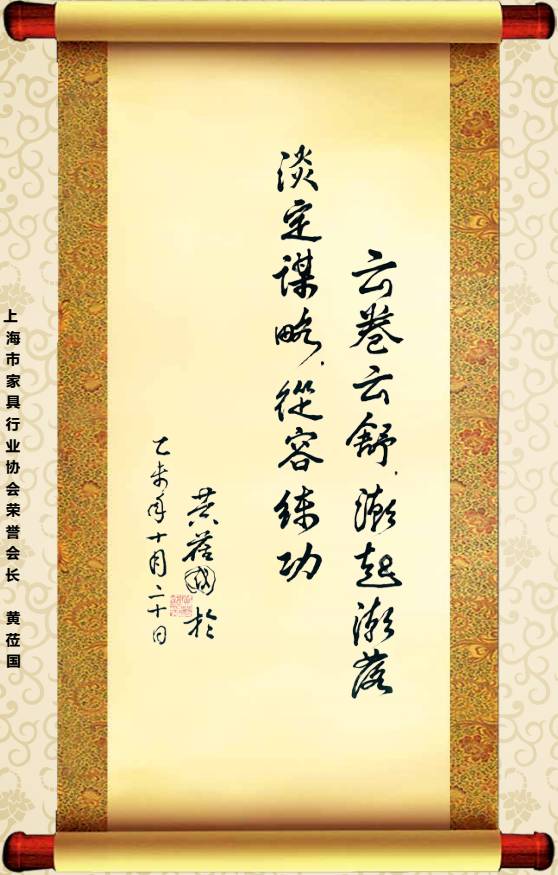 云卷云舒，潮起潮落
淡定谋略，從容练功
黄莅国於
乙未年十月二十日
上海市家具行业协会荣誉会长 黄莅国